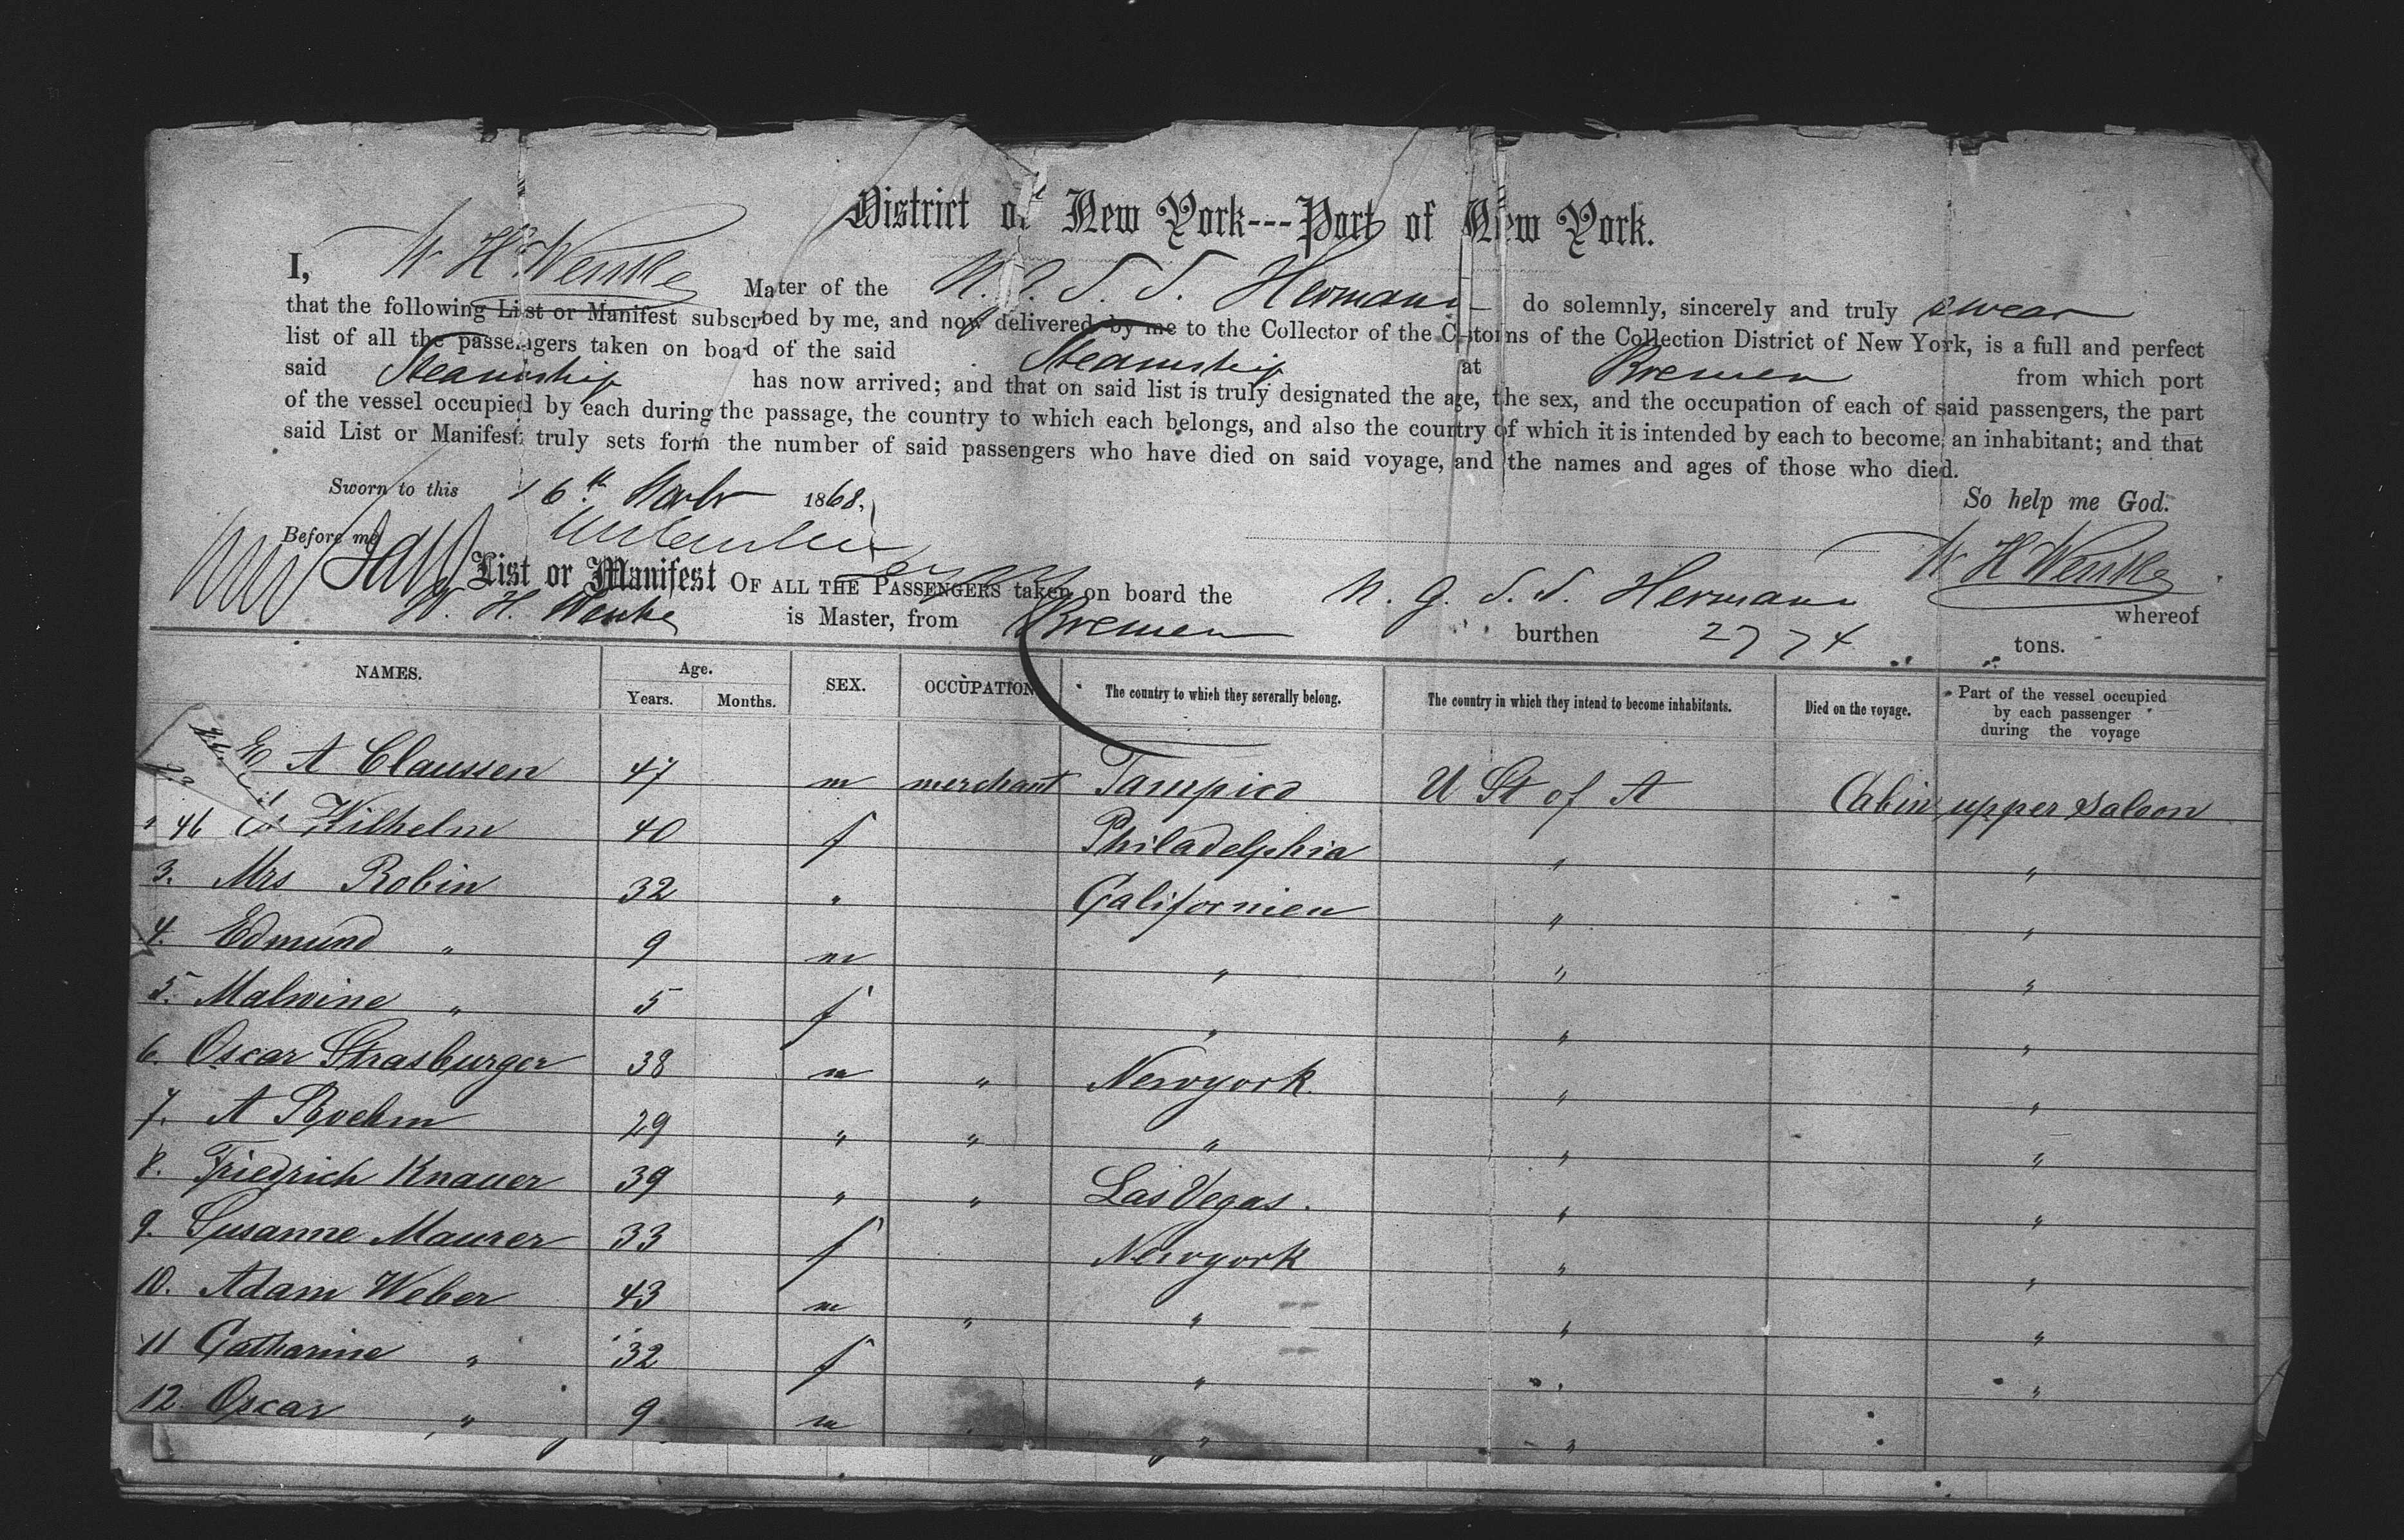 District of New York---Port of New York.
I, W. H. Wenke Mater of the N. G. S. S. Hermann do solemnly, sincerely and truly swear
that the following List or Manifest subscrbed by me, and now delivered by me to the Collector of the Customs of the Collection District of New York, is a full and perfect
list of all the passengers taken on board of the said Steamship at Bremen from which port
said Steamship has now arrived; and that on said list is truly designated the age, the sex, and the occupation of each of said passengers, the part
of the vessel occupied by each during the passage, the country to which each belongs, and also the country of which it is intended by each to become an inhabitant; and that
said List or Manifest truly sets forth the number of said passengers who have died on said voyage, and the names and ages of those who died.
So help me God.
Sworn to this 16th 1868.
Before me W. H. Wenke
List or Manifest OF ALL THE PASSENGERS taken on board the N. G. S. S. Hermann whereof
W. H. Wenke is Master, from Bremen burthen 2774 tons.
NAMES. Age. Years. Months. SEX. OCCUPATION The country to which they severally belong. The country in which they intend to become inhabitants. Died on the voyage. Part of the vessel occupied by each passenger during the voyage
E A Claussen 47 m merchant Tampico U St of A Cabin upper Saloon
46 Wilhelm 40 f Philadelphia " "
3. Mrs Robin 32 " Californien " "
4. Edmund " 9 m " " "
5. Malwine " 5 f " " "
6. Oscar Strasburger 38 m " Newyork. " "
7. A Boehm 29 " " " " "
8. Friedrich Knauer 39 " " Las Vegas. " "
9. Susanne Maurer 33 f Newyork " "
10. Adam Weber 43 m " " " "
11 Catharine " 32 f " " "
12. Oscar " 9 m " "